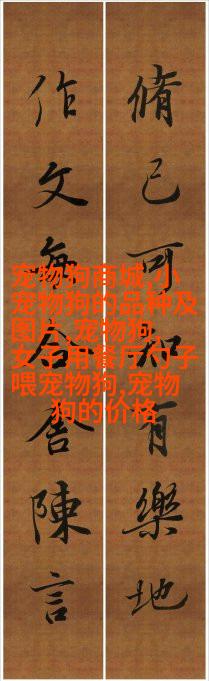 脩己可知有樂地
作文合舍陳言
宠物狗商城,小
宠物狗的品种及
图片,宠物狗,
女子用餐厅勺子
喂宠物狗,宠物
狗的价格